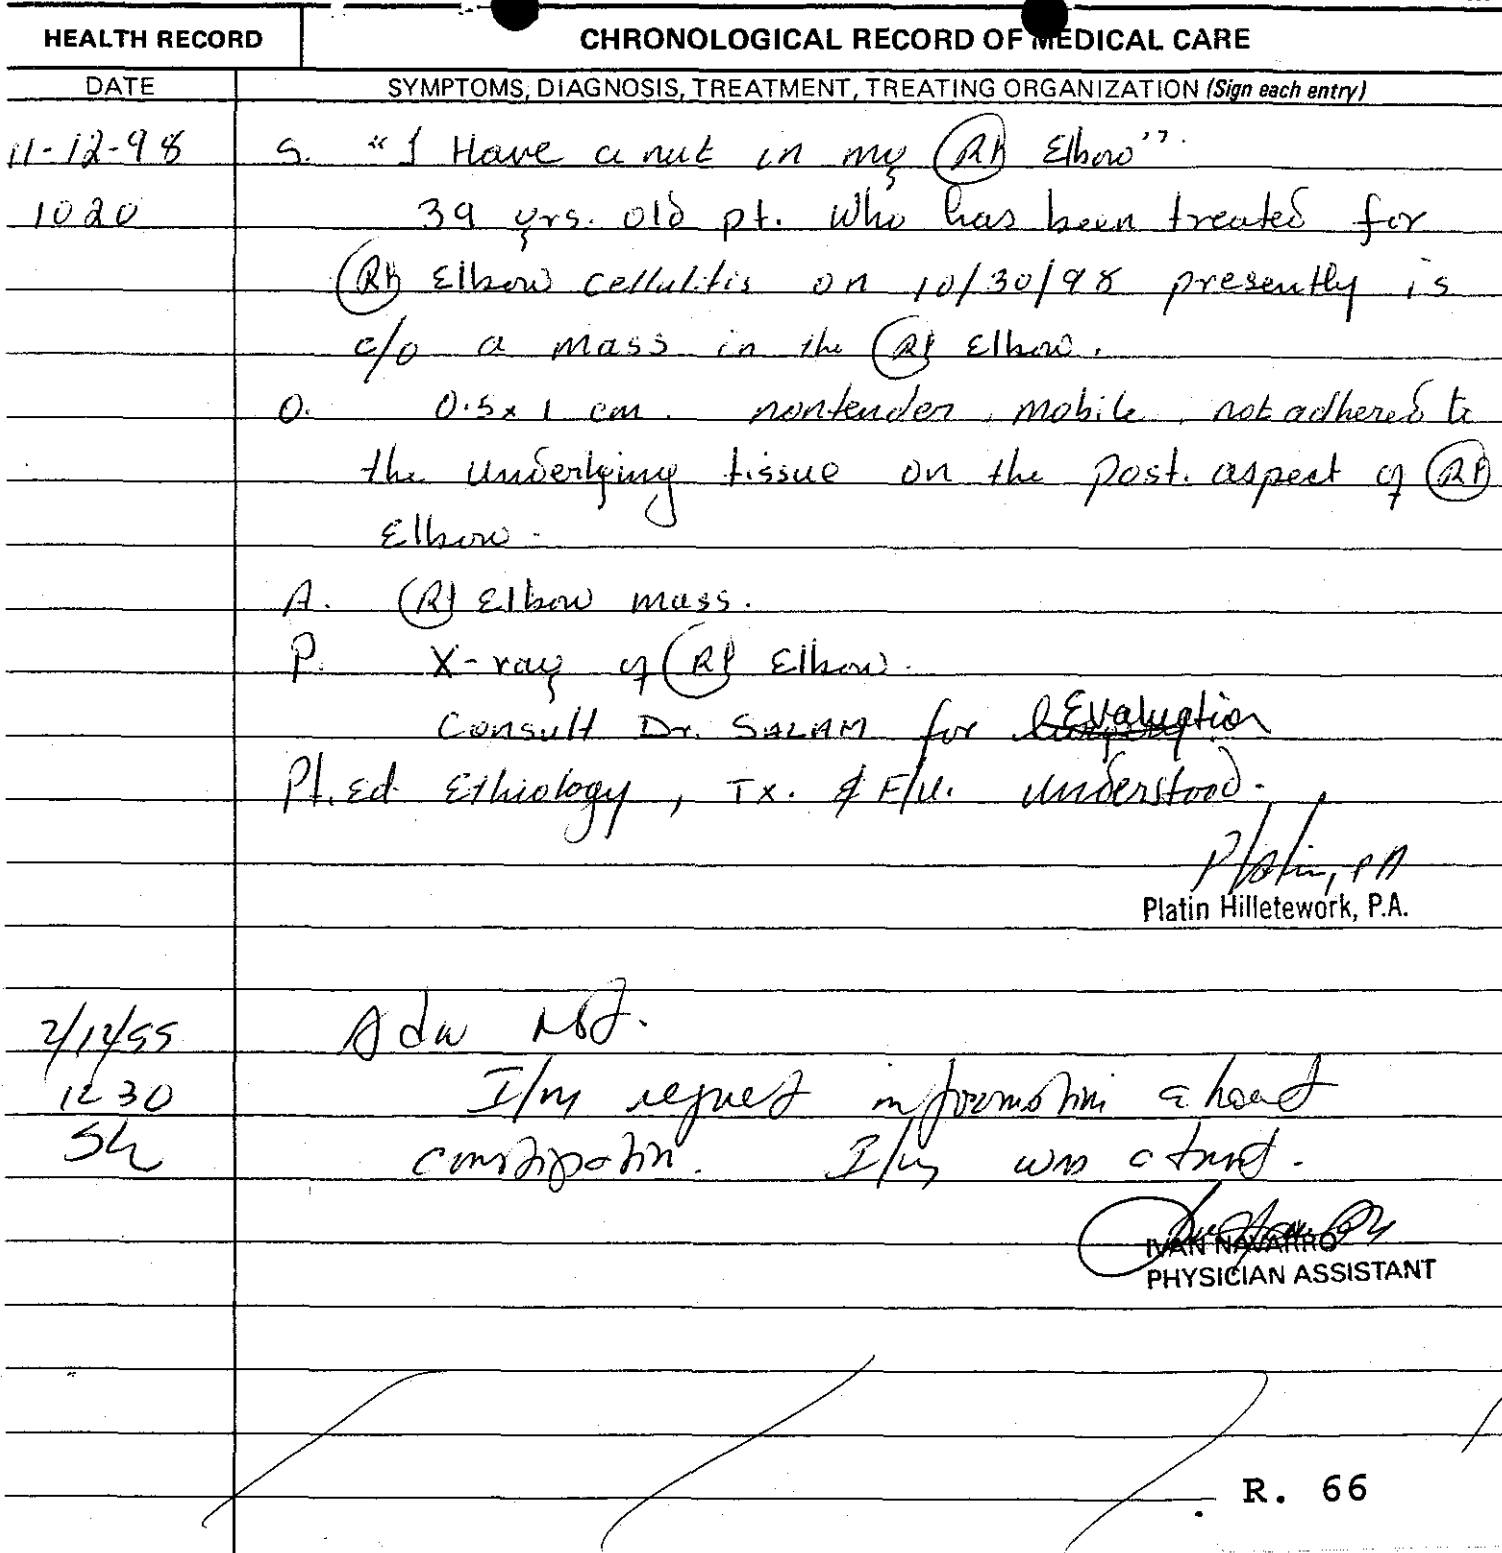 HEALTH RECORD CHRONOLOGICAL RECORD OF MEDICAL CARE
DATE SYMPTOMS, DIAGNOSIS, TREATMENT, TREATING ORGANIZATION (Sign each entry)
11-12-98 S. "I Have a nut in my Rt Elbow".
1020 39 yrs. old pt. who has been treated for
Rt Elbow cellulitis on 10/30/98 presently is
c/o a mass in the Rt Elbow.
O. 0.5x 1 cm. nontender, mobile, not adhered to
the underlying tissue on the post. aspect of Rt
Elbow.
A. R Elbow mass.
P. X-ray of Rt Elbow.
Consult Dr. SALAM for Evaluation
Pt. Ed Ethiology, Tx. & F/U. understood.
Platin, PA
Platin Hilletework, P.A.
2/12/99 Adm
1230 I/m request information about
constipation. I/m was
IVAN NAVARRO
PHYSICIAN ASSISTANT
R. 66